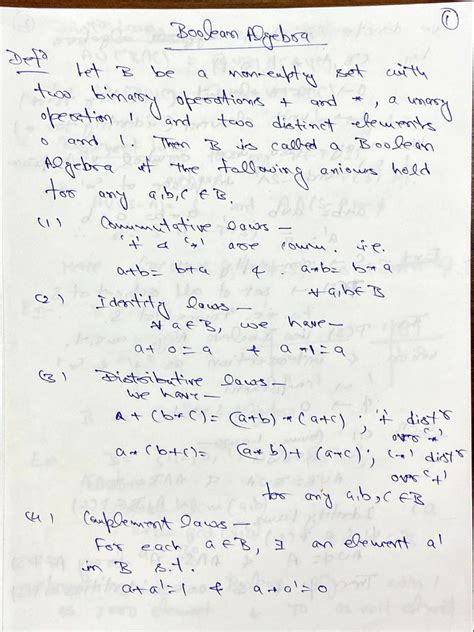 ①
Boolean Algebra
Defⁿ Let B be a non-empty set with
two binary operations + and *, a unary
operation ' and two distinct elements
0 and 1. Then B is called a Boolean
Algebra if the following axioms hold
for any a,b,c ∈ B.
(1) Commutative laws –
'+' & '*' are comm. i.e.
a+b = b+a & a*b = b*a
∀ a,b ∈ B
(2) Identity laws –
∀ a ∈ B, we have –
a + 0 = a & a * 1 = a
(3) Distributive laws –
we have –
a + (b*c) = (a+b) * (a+c) ; '+' distr
over '*'
a * (b+c) = (a*b) + (a*c) ; '*' distr
over '+'
for any a,b,c ∈ B
(4) Complement laws –
For each a ∈ B, ∃ an element a'
in B s.t.
a+a' = 1 & a*a' = 0